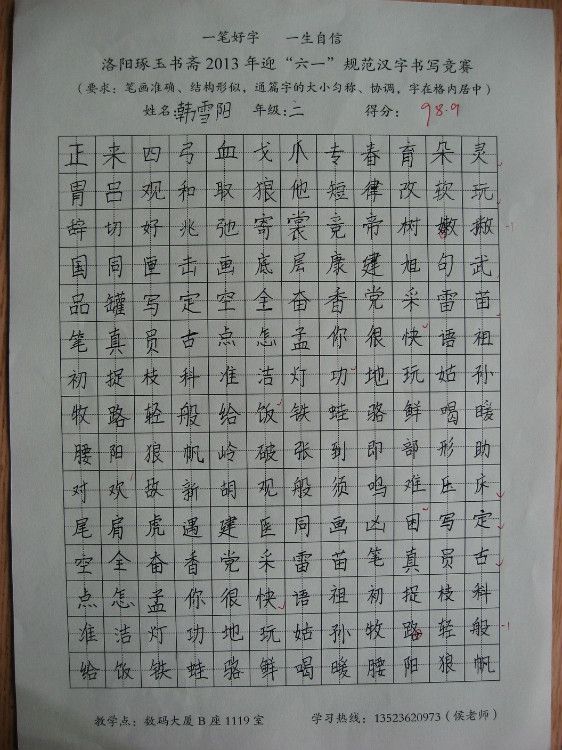 一笔好字 一生自信
洛阳琢玉书斋2013年迎“六一”规范汉字书写竞赛
（要求：笔画准确、结构形似，通篇字的大小匀称、协调，字在格内居中）
姓名：韩雪阳 年级：二 得分：98.9
正来四弓血戈爪专春育朵灵
胃吕观和取狼他短律改软玩
辞切好兆弛寄裳竟帝树嫩撇
国同匣击画底层康建旭句武
品罐写定空全奋香党采雷苗
笔真员古点怎孟你很快语祖
初捉枝科准洁灯功地玩姑孙
牧路轻般给饭铁蛙骆鲜喝暖
腰阳狼帆岭破张到即部形助
对欢故新胡观般须鸣难压床
尾肩虎遇建医同画凶困写定
空全奋香党采雷苗笔真员古
点怎孟你很快语祖初捉枝科
准洁灯功地玩姑孙牧路轻般
给饭铁蛙骆鲜喝暖腰阳狼帆
-1
-1
教学点：数码大厦B座1119室 学习热线：13523620973（侯老师）